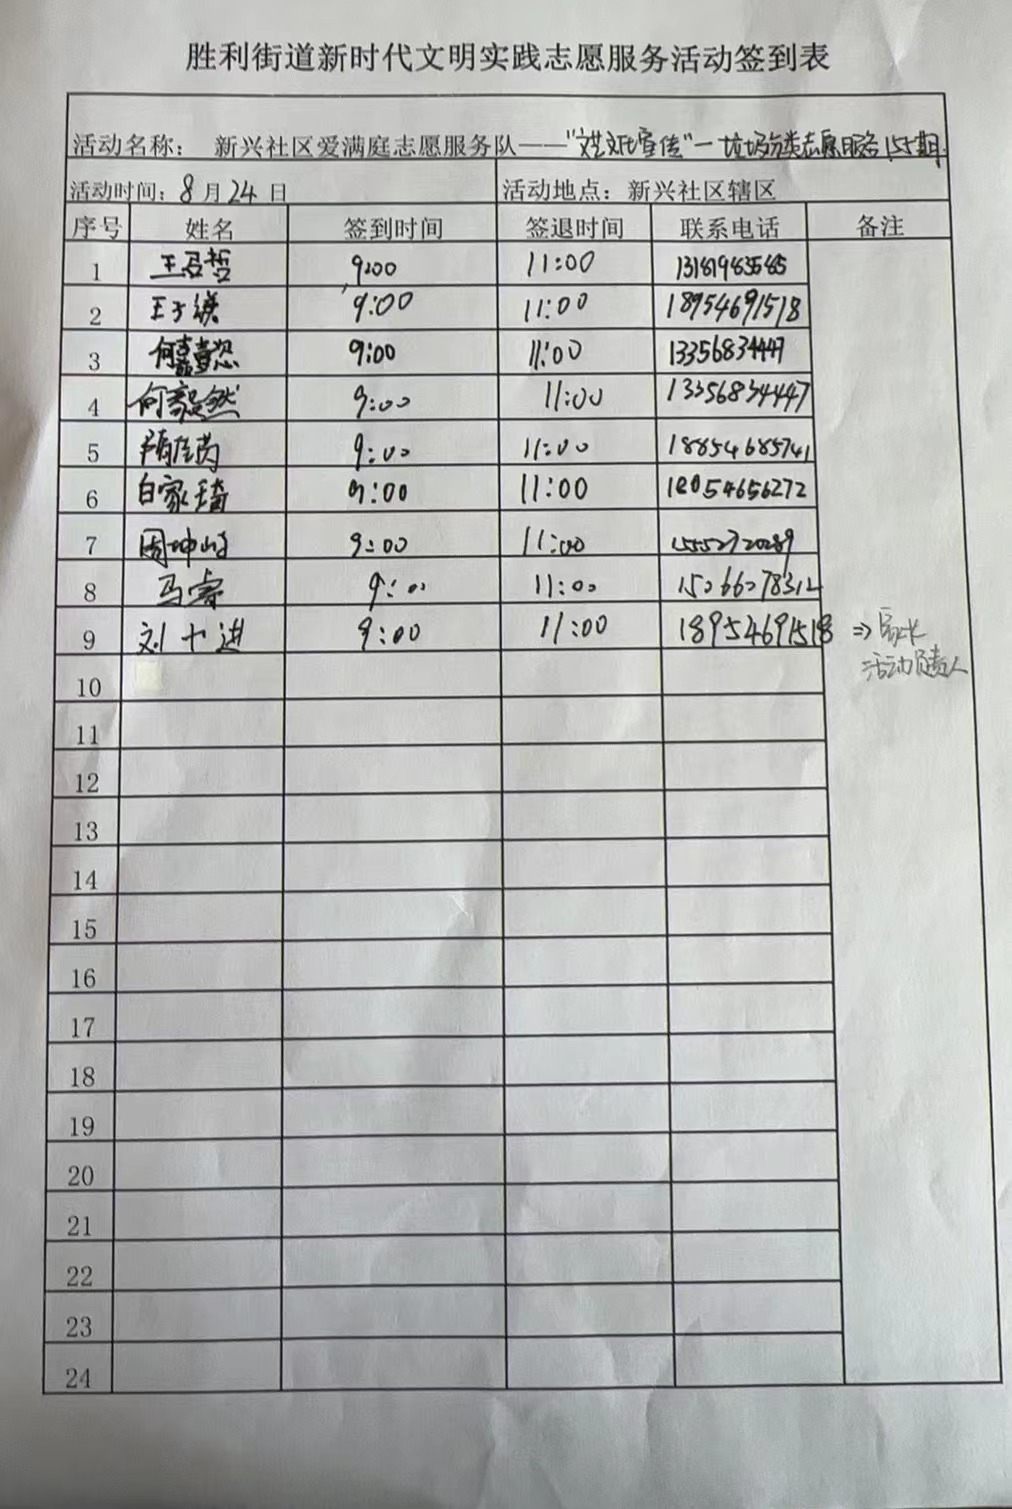 胜利街道新时代文明实践志愿服务活动签到表
活动名称： 新兴社区爱满庭志愿服务队——"文艺文化宣传"一垃圾分类志愿服务155期
活动时间：8月24日 活动地点：新兴社区辖区
序号 姓名 签到时间 签退时间 联系电话 备注
1 王君哲 9:00 11:00 13181983585
2 王子 9:00 11:00 18954691518
3 何 9:00 11:00 13356834447
4 何毅然 9:00 11:00 13356834447
5 隋佳芮 9:00 11:00 18854685741
6 白家琦 9:00 11:00 18054656272
7 周坤 9:00 11:00
8 马睿 9:00 11:00 15066078312
9 刘十进 9:00 11:00 18954691518 ⇒家长
活动负责人
10
11
12
13
14
15
16
17
18
19
20
21
22
23
24